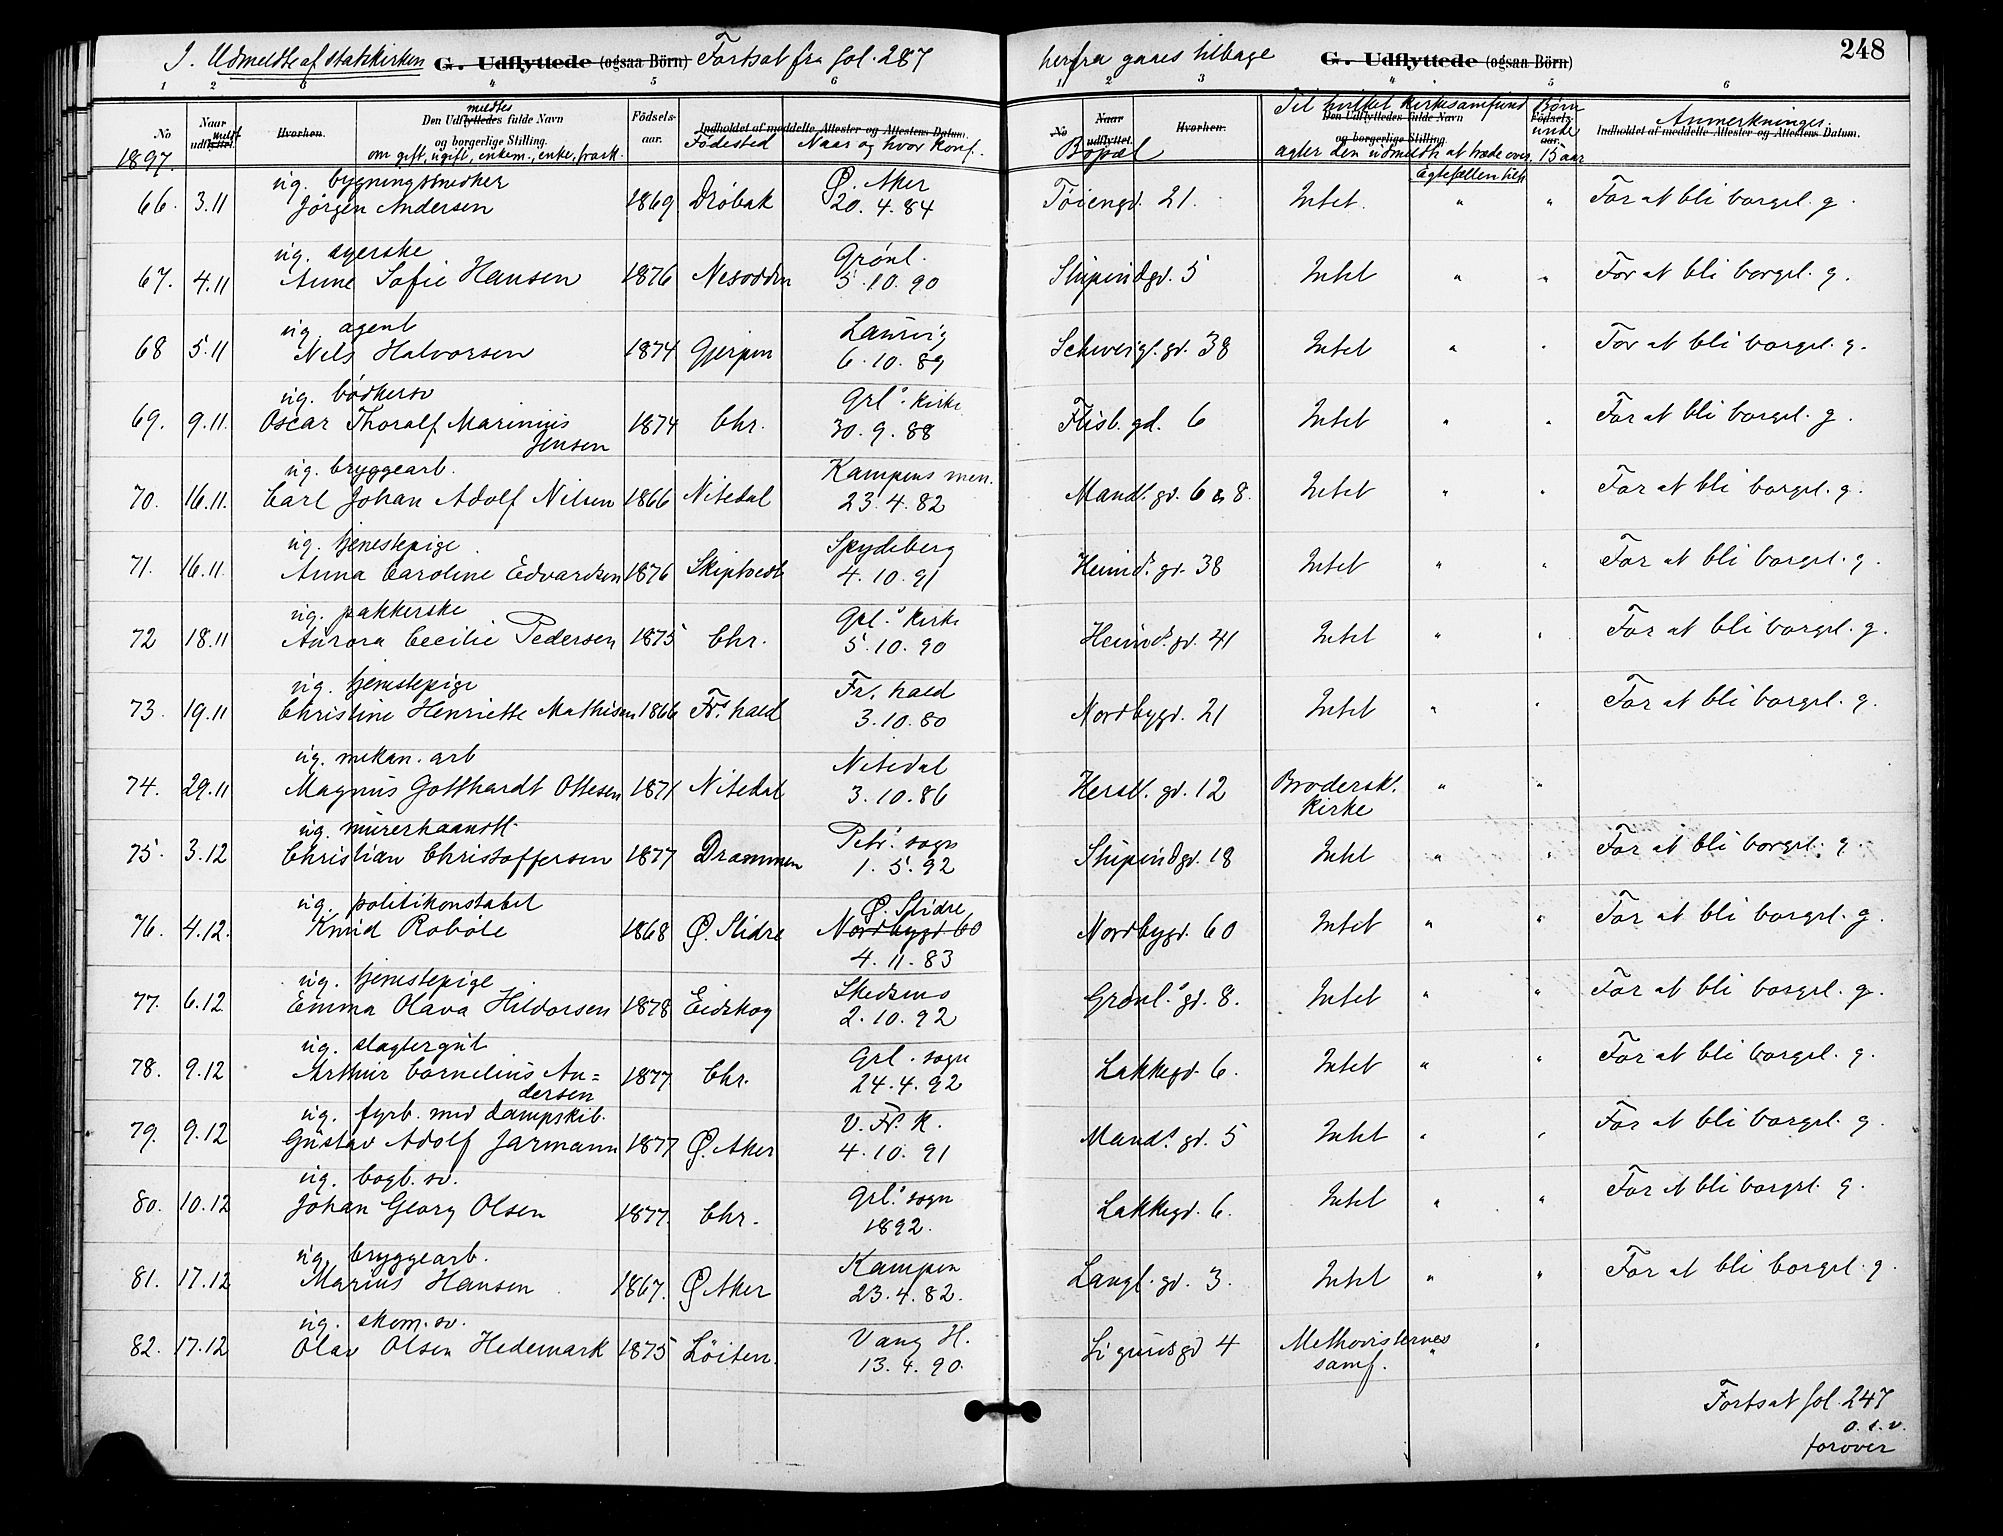 J. Udmeldte af statskirken G. Udflyttede (ogsaa Börn) Fortsat fra fol. 287
1 2 3 4 5 6
No
Naar meldt udflyttet.
Hvorhen.
Den Udflyttedes meldtes fulde Navn
og borgerlige Stilling.
om gift, ugift, enkem., enke, frask.
Födsels-
aar.
Indholdet af meddelte Attester og Attestens Datum.
Födested Naar og hvor konf.
1897.
ug. bygningssnedker Ø. Aker
66. 3.11 Jörgen Andersen 1869 Dröbak 20.4.84
ug. syerske Grönl.
67. 4.11 Anne Sofie Hansen 1876 Nesodden 5.10.90
ug. agent Laurvig
68 5.11 Nils Halvorsen 1874 Gjerpen 6.10.89
ug. bödkersv Grl.s Kirke
69. 9.11. Oscar Thoralf Marinius 1874 Chr. 30.9.88
Jensen
ug. bryggearb. Kampens men.
70. 16.11. Carl Johan Adolf Nilsen 1866 Nitedal 23.4.82
ug. tjenestepige Spydeberg
71. 16.11. Anna Caroline Edvardsen 1876 Skiptvedt 4.10.91
ug. pakkerske Grl.s Kirke
72 18.11 Aurora Cecilie Pedersen 1875 Chr. 5.10.90
ug. tjenestepige Fr. hald
73. 19.11 Christine Henriette Mathisen 1866 Frs hald 3.10.80
ug. mekan. arb Nitedal
74. 29.11 Magnus Gotthardt Ottesen 1871 Nitedal 3.10.86
ug. murerhaandtl. Petri sogn
75. 3.12 Christian Christoffersen 1877 Drammen 1.5.92
ug. politikonstabel Ø. Slidre
76. 4.12. Knud Roböle 1868 Ø. Slidre Nordbygd 60
4.11.83
ug. tjenestepige Skedsmo
77. 6.12 Emma Olava Hildorsen 1878 Eidskog 2.10.92
ug. slagtergut Grl. sogn
78. 9.12 Arthur Cornelius An= 1877 Chr. 24.4.92
dersen
ug. fyrb. med dampskib. V. Fr. K.
79. 9.12 Gustav Adolf Jarmann 1877 Ø. Aker 4.10.91
ug. bogb. sv. Grl.s sogn
80. 10.12 Johan Georg Olsen 1877. Chr. 1892.
ug. bryggearb. Kampen
81. 17.12 Marius Hansen 1867. Ø Aker 23.4.82.
ug. skom. sv. Vang H.
82. 17.12 Olav Olsen Hedemark 1875 Löiten 13.4.90.
herfra gaaes tilbage G. Udflyttede (ogsaa Börn) 248
1 2 3 4 5 6
No
Naar
udflyttet.
Hvorhen.
Bopæl
Til hvilket kirkesamfund
Den Udflyttedes fulde Navn
og borgerlige Stilling
agter den udmeldte at træde over.
Ægtefællen tilh.
Börn
Födsels-
under
aar.
15 aar
Anmerkninger.
Indholdet af meddelte Attester og Attestens Datum.
Töiengd. 21. Intet. " " For at bli borgel. g.
Stupindgd. 5 Intet " " For at bli borgel. g.
Schweigl. gd. 38 Intet " " For at bli borgel. g.
Flisb. gd. 6 Intet " " For at bli borgel. g.
Mandl. gd. 6 & 8. Intet " " For at bli borgel. g.
Heimd. gd. 38 Intet " " For at bli borgel. g.
Heimd. gd. 41 Intet " " For at bli borgel. g.
Nordbygd. 21 Intet " " For at bli borgel. g.
Hersl. gd. 12 Brodersk. " "
Kirke
Stupindgd. 18 Intet " " For at bli borgel. g.
Nordbygd. 60 Intet " " For at bli borgel. g.
Grönl.s gd. 8. Intet " " For at bli borgel. g.
Lakkegd. 6. Intet " " For at bli borgel. g.
Mandl. gd. 5 Intet " " For at bli borgel. g.
Lakkegd. 6. Intet " " For at bli borgel. g.
Langl. gd. 3. Intet " " For at bli borgel. g.
Sigurdsgd 4 Methodisternes " "
samf.
Fortsat fol. 247
o. s. v.
forover